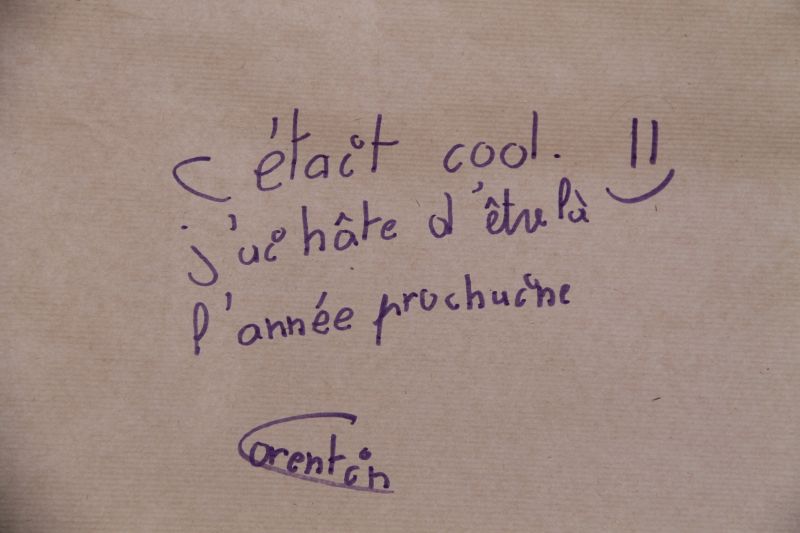 C'était cool.
j'ai hâte d'être là
l'année prochaine
Corentin